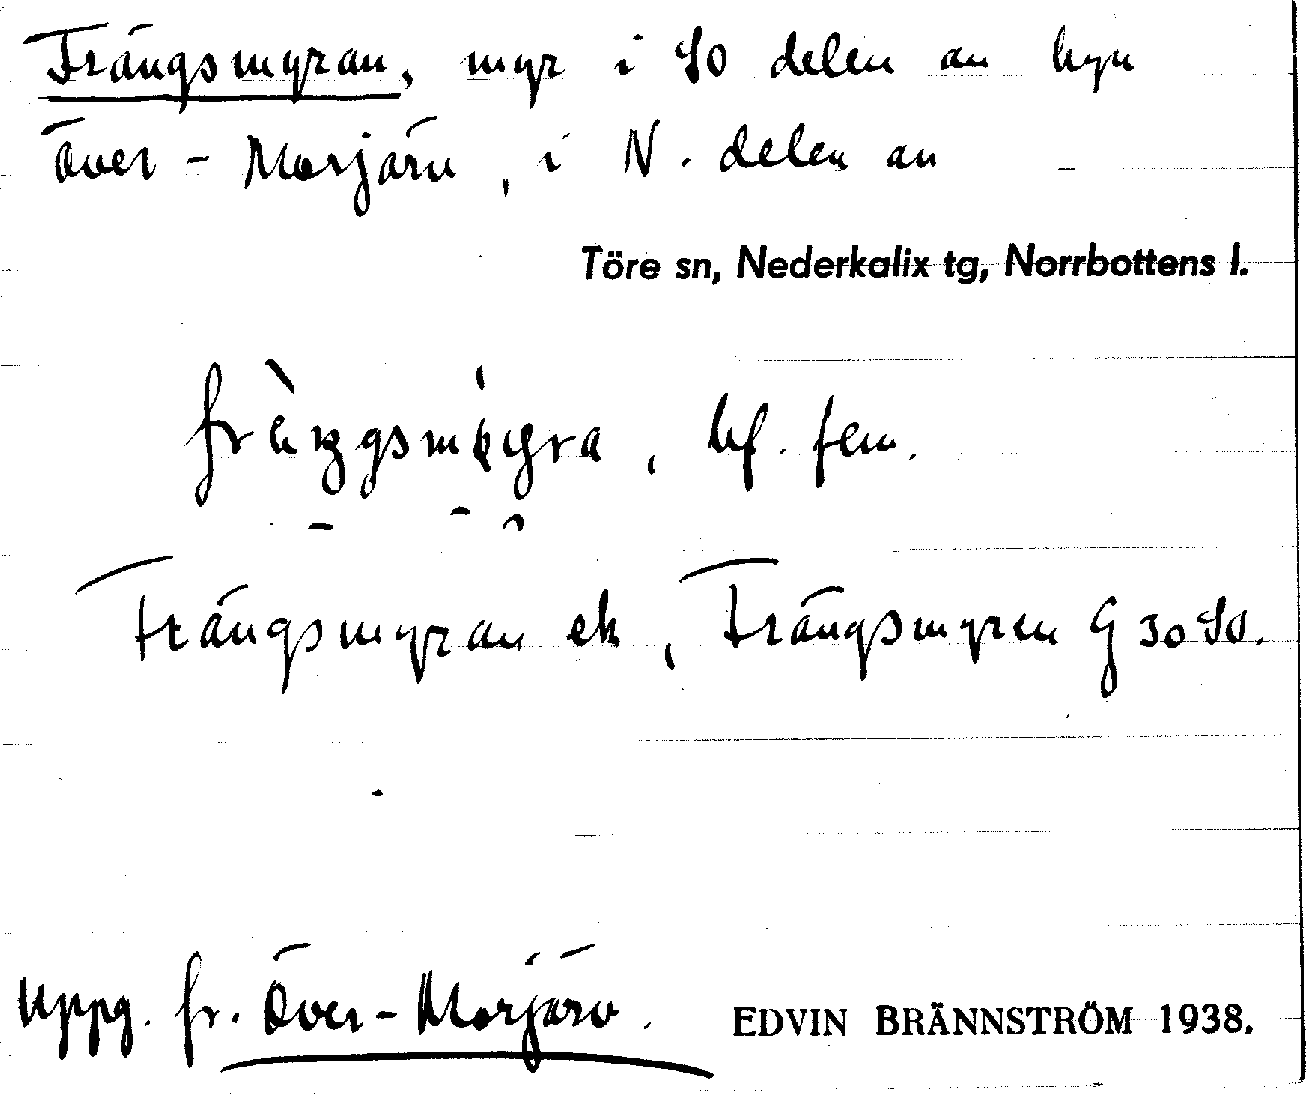 Frängsmyran, myr i SO delen av byn
Över-Morjärv, i N. delen av
Töre sn, Nederkalix tg, Norrbottens l.
bf. fem.
Frängsmyran ek, Frängsmyren G 30 SO.
Uppg. fr. Över-Morjärv. EDVIN BRÄNNSTRÖM 1938.